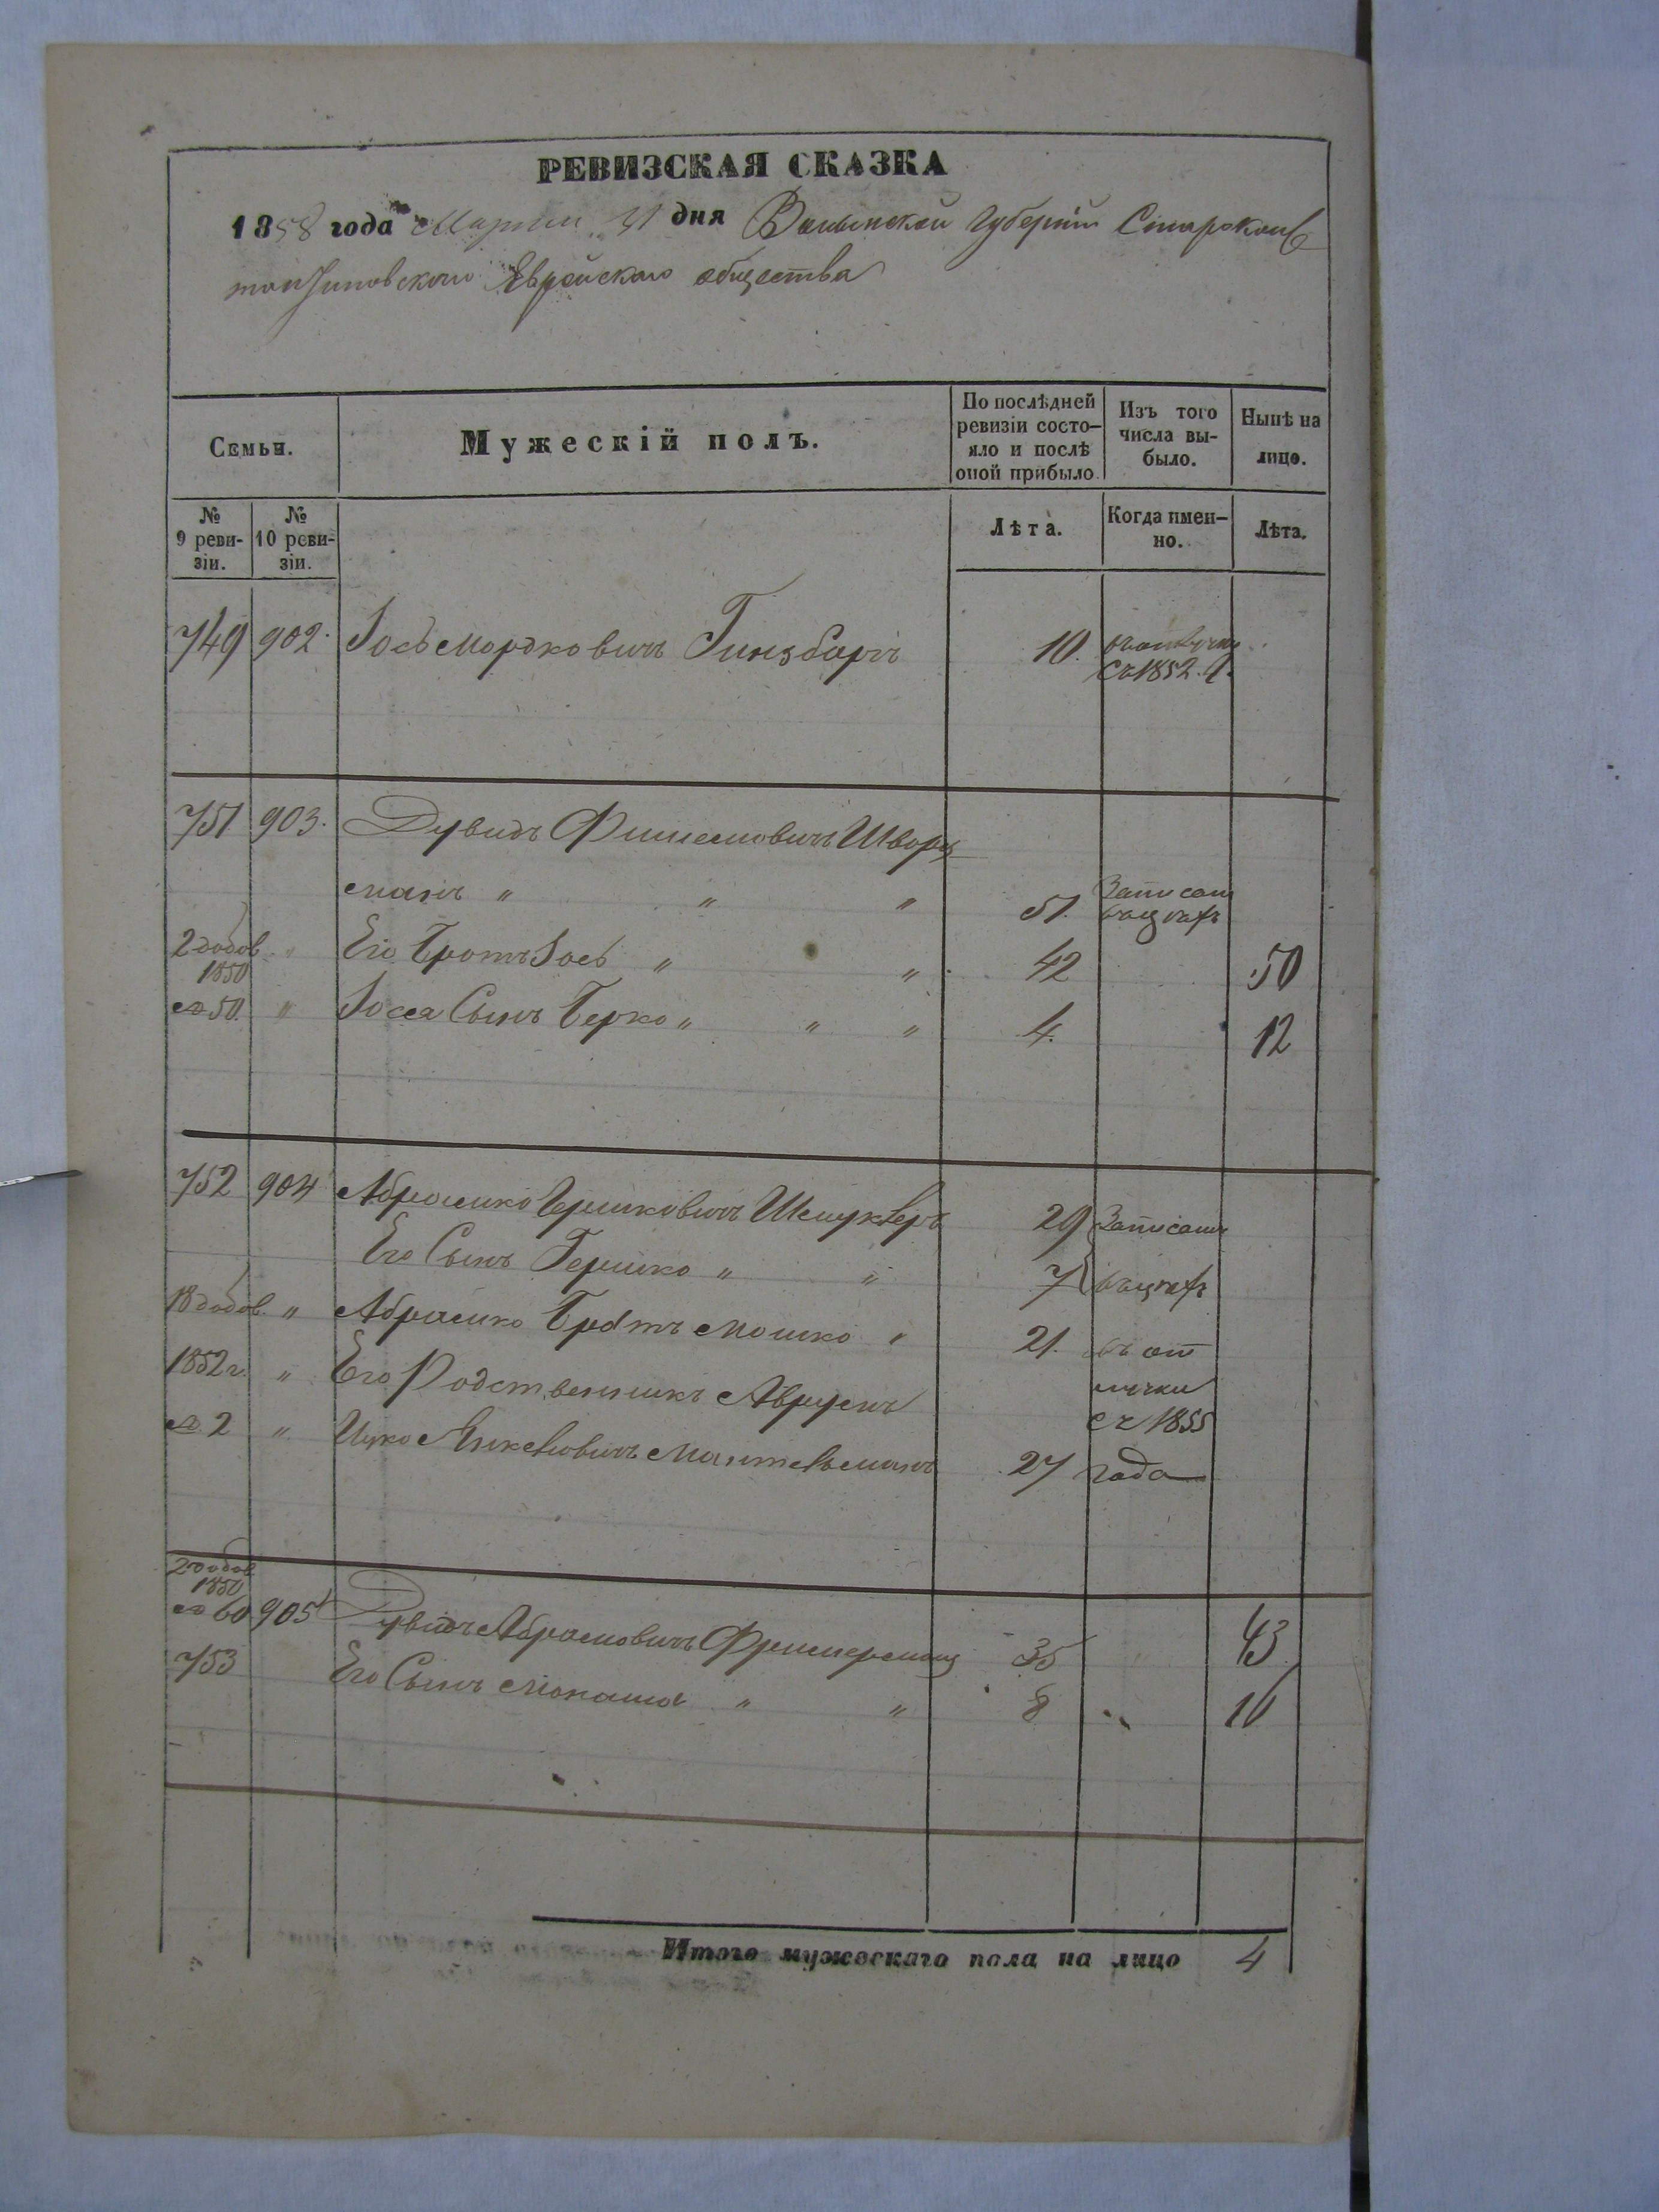 РЕВИЗСКАЯ СКАЗКА
1858 года Марта 31 дня Волынской Губернии Старокон
тантиновскаго Еврейскаго общества
Семьи. Мужескій полъ. По послѣдней ревизіи состояло и послѣ оной прибыло. Изъ того числа выбыло. Нынѣ на лицо.
№ 9 ревизіи. № 10 ревизіи. Лѣта. Когда именно. Лѣта.
749 902. Іось Мордковичъ Гинзбургъ 10.
съ 1852. г.
751 903. Дувидъ Финкелиовичъ Шварц
манъ " " " 51. Записанъ
2 добов. " Его Братъ Іось " " 42 50
1850
№ 50 " Іося Сынъ Берко " " " 4. 12
752 904 Абрамко Гершковичъ 29 Записаны
Его Сынъ Гершко " " 7
18 добов. " Абрамко Братъ Мошко " 21. въ от
1852 г. " Его Родственникъ Аврумъ лучки
№ 2 " Ицко Янкелiовичъ Мантельманъ 27 съ 1855
года
2 добов
1850
№ 60 905 Дувидъ Абрамовичъ 35 " 43
753 Его Сынъ Монашъ " " 8 " 16
Итого мужескаго пола на лицо 4